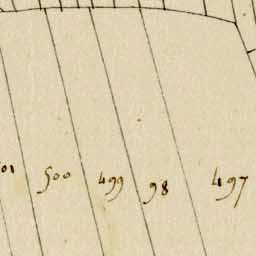 501 500 499 98 497